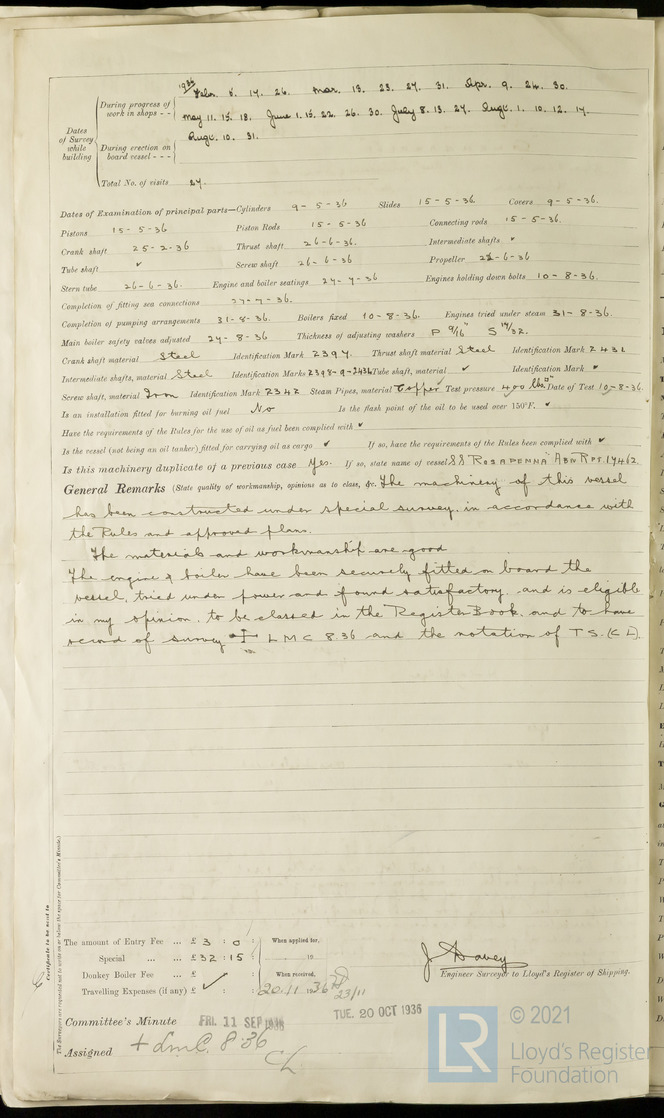 1936
Dates of Survey while building
During progress of work in shops - - Feb. 5. 17. 26. Mar. 13. 23. 27. 31. Apr. 9. 24. 30.
May 11. 15. 18. June 1. 15. 22. 26. 30. July 8. 13. 27. Augt. 1. 10. 12. 17.
During erection on board vessel - - - Augt. 10. 31.
Total No. of visits 27.
Dates of Examination of principal parts—Cylinders 9-5-36 Slides 15-5-36. Covers 9-5-36.
Pistons 15-5-36 Piston Rods 15-5-36 Connecting rods 15-5-36.
Crank shaft 25-2-36 Thrust shaft 26-6-36. Intermediate shafts ✓
Tube shaft ✓ Screw shaft 26-6-36 Propeller 26-6-36.
Stern tube 26-6-36. Engine and boiler seatings 27-7-36 Engines holding down bolts 10-8-36.
Completion of fitting sea connections 27-7-36.
Completion of pumping arrangements 31-8-36. Boilers fixed 10-8-36. Engines tried under steam 31-8-36.
Main boiler safety valves adjusted 24-8-36 Thickness of adjusting washers P 9/16" S /32.
Crank shaft material Steel Identification Mark 2397. Thrust shaft material Steel Identification Mark 2432
Intermediate shafts, material Steel Identification Marks 2398-9-2434 Tube shaft, material ✓ Identification Mark ✓
Screw shaft, material Iron Identification Mark 2342 Steam Pipes, material Copper Test pressure 400 lbs□" Date of Test 10-8-36.
Is an installation fitted for burning oil fuel No Is the flash point of the oil to be used over 150°F. ✓
Have the requirements of the Rules for the use of oil as fuel been complied with ✓
Is the vessel (not being an oil tanker) fitted for carrying oil as cargo ✓ If so, have the requirements of the Rules been complied with ✓
Is this machinery duplicate of a previous case Yes. If so, state name of vessel SS ROSAPENNA ABN RPT. 17462.
General Remarks (State quality of workmanship, opinions as to class, &c. The machinery of this vessel
has been constructed under special survey. in accordance with
the Rules and approved plans.
The materials and workmanship are good
The engine & boiler have been securely fitted on board the
vessel, tried under power and found satisfactory. and is eligible
in my opinion. to be classed in the Register Book. and to have
record of survey ✠ LMC 8.36 and the notation of T S. (C L).
Certificate to be sent to
(The Surveyors are requested not to write on or below the space for Committee's Minute.)
The amount of Entry Fee ... £ 3 : 0 : When applied for,
Special ... ... £ 32 : 15 : 19
Donkey Boiler Fee ... £ ✓ : : When received,
Travelling Expenses (if any) £ : : 20.11.1936 23/11
J Davey
Engineer Surveyor to Lloyd's Register of Shipping.
Committee's Minute FRI. 11 SEP 1936 TUE. 20 OCT 1936
Assigned + LMC 8.36
CL
LR
© 2021
Lloyd's Register
Foundation